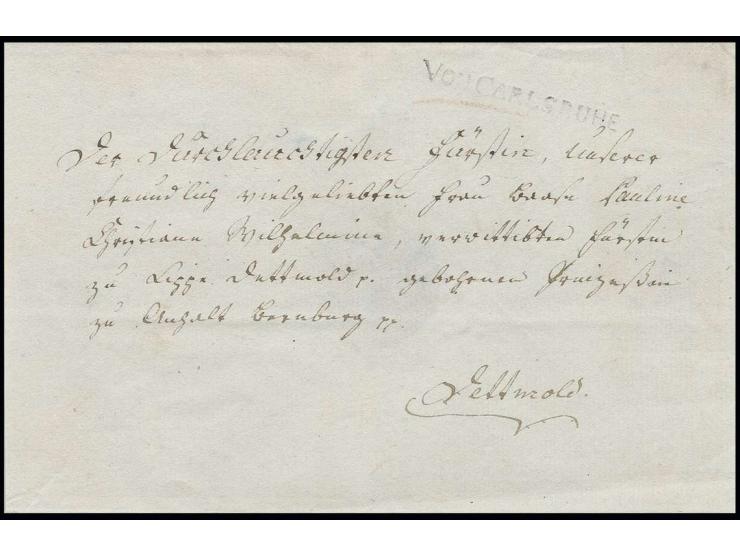 VON CARLSRUHE
Der Durchlauchtigsten Fürstin, Unserer
freundlich vielgeliebten Frau Baase Pauline
Christiane Wilhelmine, verwittibten Fürstin
zu Lippe Dettmold p. gebohrnen Prinzeßin
zu Anhalt Bernburg pp.
Dettmold.